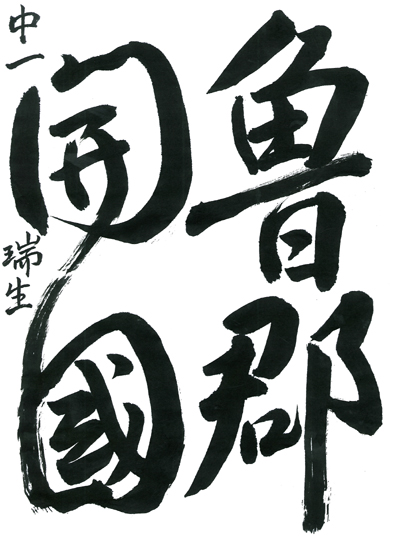 魯郡
開國
中一
瑞生